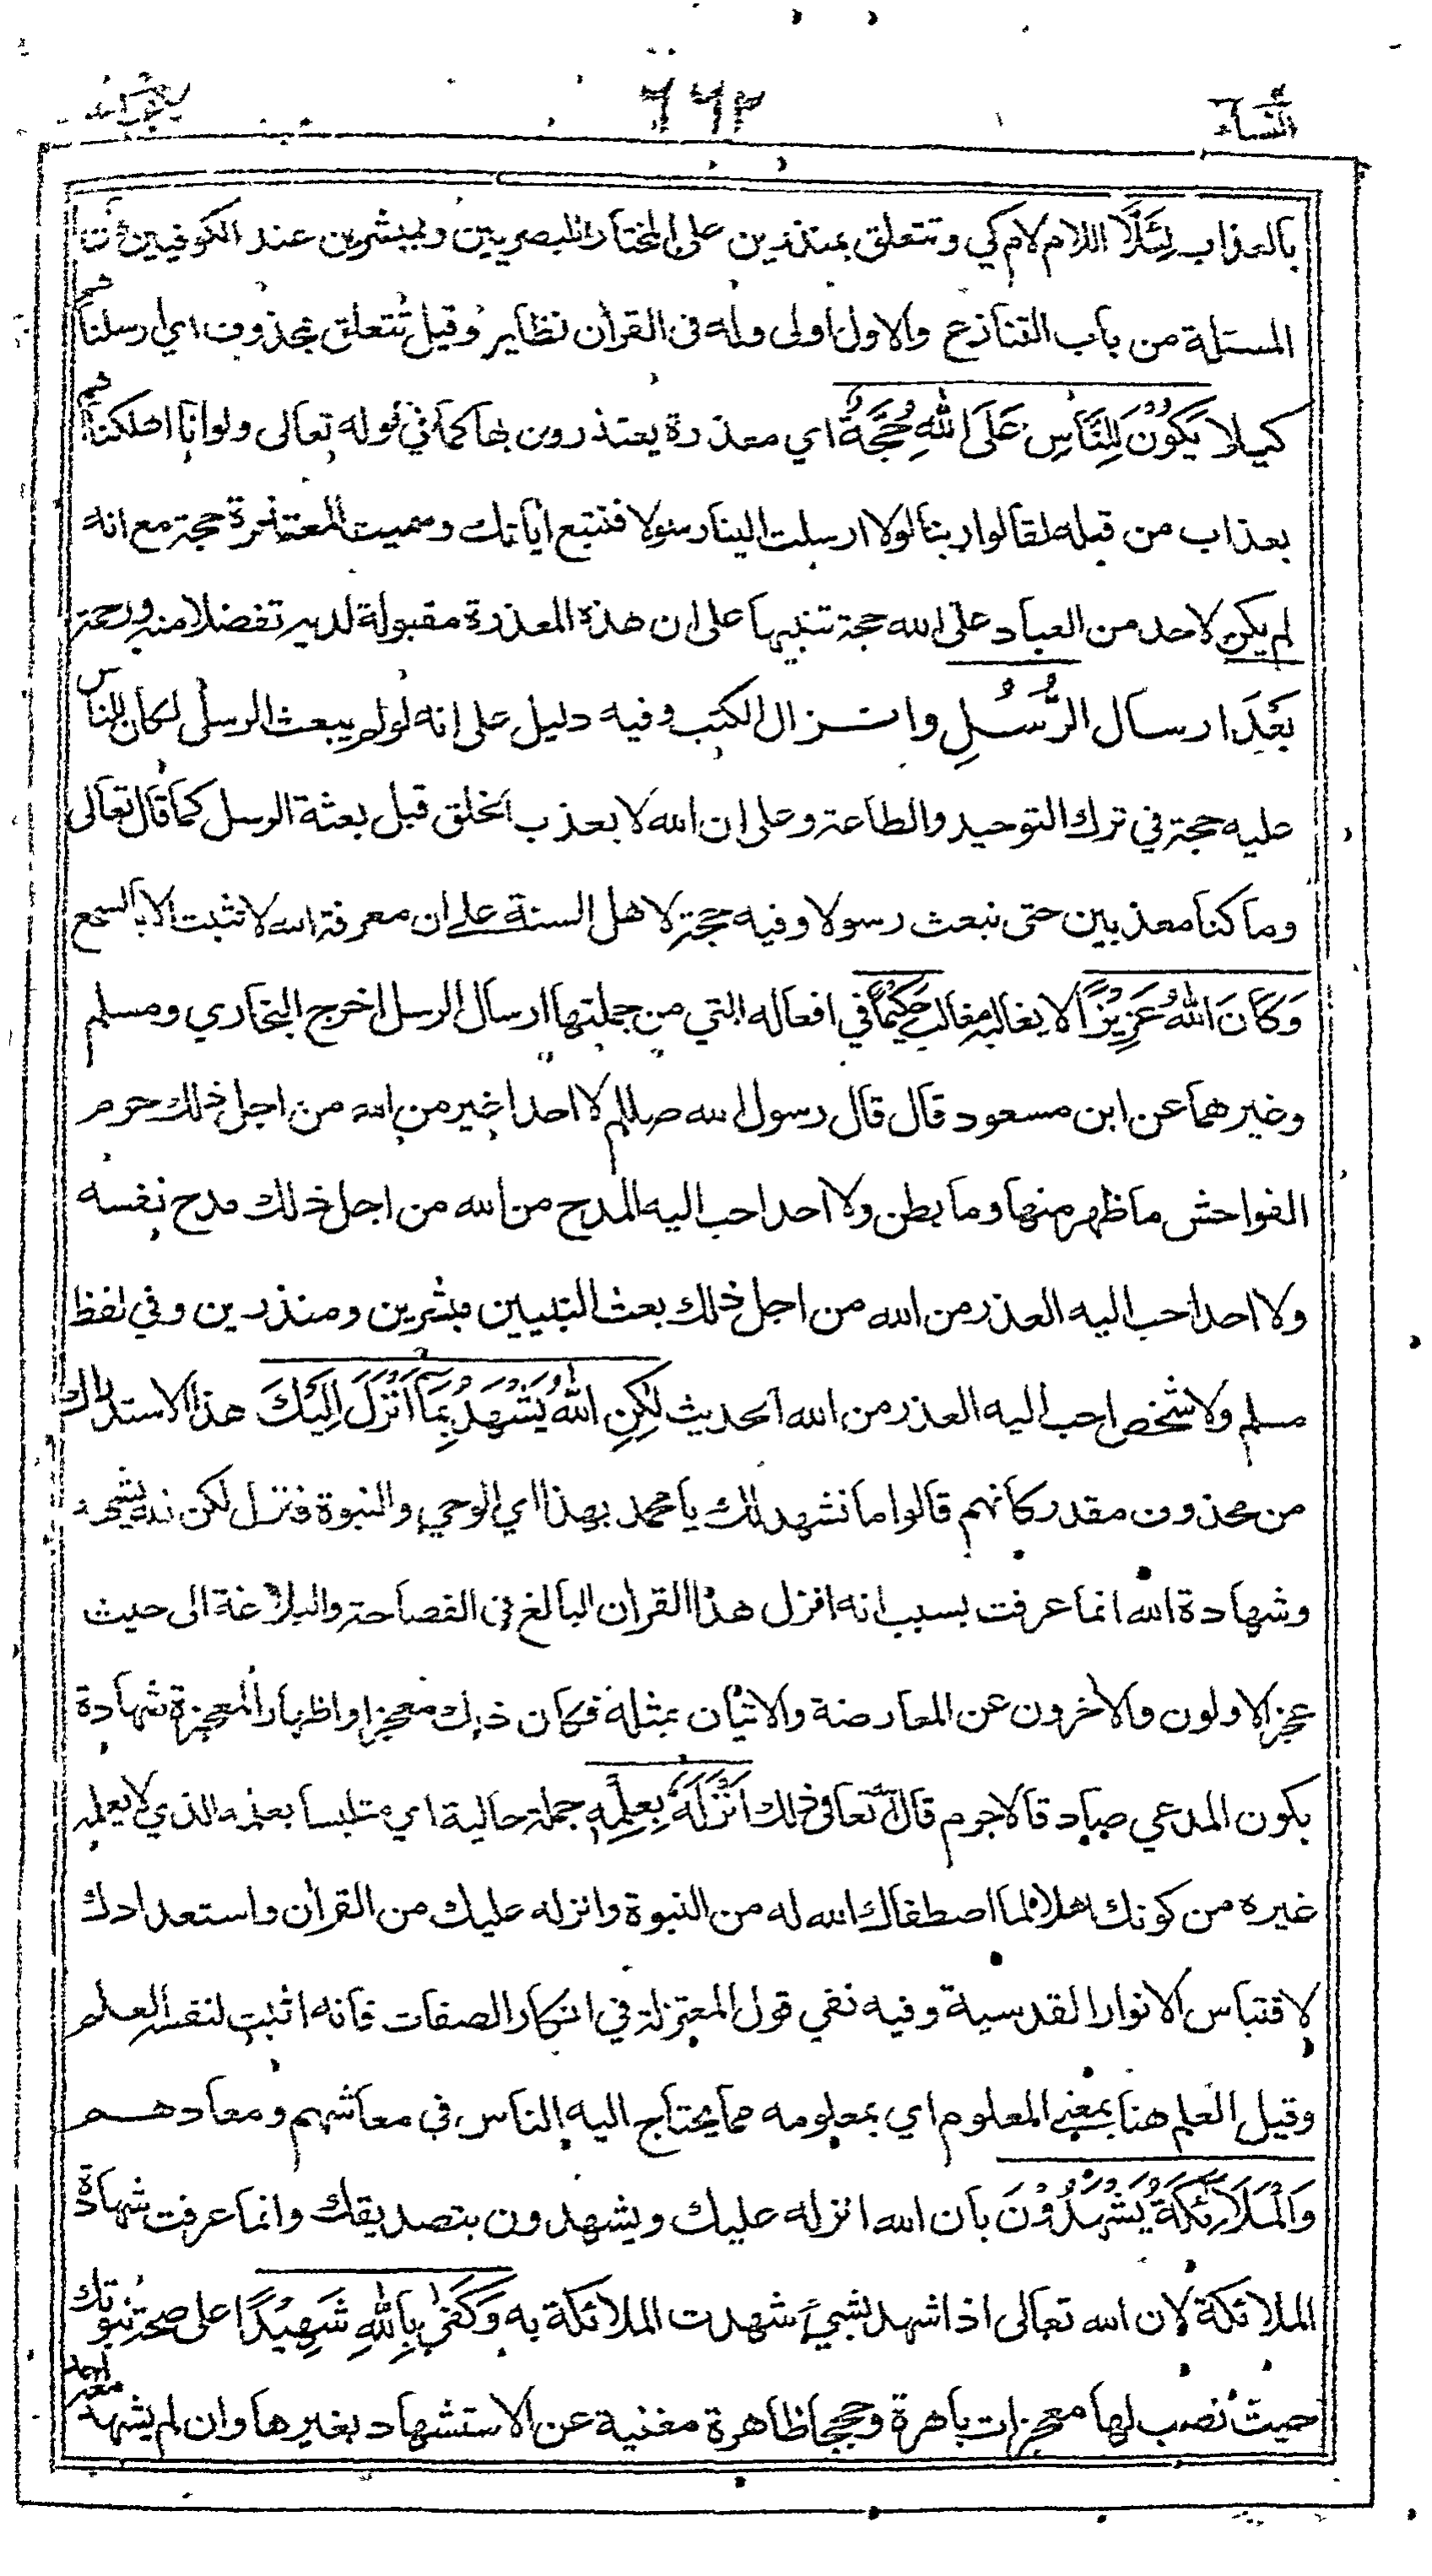 النساء ٦٦٢
بالعذاب لِئَلَّا اللام لام كي وتتعلق بمنذرين على المختار للبصريين وبمبشرين عند الكوفيين
المسئلة من باب التنازع والاول اولى وله في القرأن نظاير وقيل تتعلق بمحذوف اي ارسلناهم
كيلا يَكُوْنَ لِلنَّاسِ عَلَى اللهِ حُجَّةٌ اي معذرة يعتذرون بها كما في قوله تعالى ولوانا اهلكناهم
بعذاب من قبله لقالوا ربنا لولا ارسلت الينا رسولا فنتبع أياتك وسميت المعذرة حجة مع انه
لم يكن لاحد من العباد على الله حجة تنبيها على ان هذه المعذرة مقبولة لديه تفضلا منه ورحمة
بَعْدَ ارسال الرُّسُلِ وانزال الكتب وفيه دليل على انه لولم يبعث الرسل لكان للناس
عليه حجة في ترك التوحيد والطاعة وعلى ان الله لا يعذب الخلق قبل بعثة الرسل كما قال تعالى
وما كنا معذبين حتى نبعث رسولا وفيه حجة لاهل السنة على ان معرفة الله لا تثبت الا بالسمع
وَكَانَ اللهُ عَزِيْزًا لا يغالبه مغالب حَكِيْمًا في افعاله التي من جملتها ارسال الرسل اخرج البخاري ومسلم
وغيرهما عن ابن مسعود قال قال رسول الله صللم لا احدا غير من الله من اجل ذلك حرم
الفواحش ما ظهر منها وما بطن ولا احدا احب اليه المدح من الله من اجل ذلك مدح نفسه
ولا احدا احب اليه العذر من الله من اجل ذلك بعث النبيين مبشرين ومنذرين وفي لفظ
مسلم ولا شخص احب اليه العذر من الله الحديث لٰكِنِ اللهُ يَشْهَدُ بِمَآ اَنْزَلَ اِلَيْكَ هذا الاستدراك
من محذوف مقدر كأنهم قالوا ما نشهد لك يا محمد بهذا اي الوحي والنبوة فنزل لكن الله يشهد
وشهادة الله انما عرفت بسبب انه انزل هذا القرأن البالغ في الفصاحة والبلاغة الى حيث
عجز الاولون والأخرون عن المعارضة والاتيان بمثله فكان ذلك معجزا واظهار المعجزة شهادة
بكون المدعي صادقا لاجرم قال الله تعالى ذلك اَنْزَلَهٗ بِعِلْمِهٖ جملة حالية اي متلبسا بعلمه الذي لا يعلمه
غيره من كونك اهلا لما اصطفاك الله له من النبوة وانزله عليك من القرأن واستعدادك
لاقتباس الانوار القدسية وفيه نفي قول المعتزلة في انكار الصفات فانه اثبت لنفسه العلم
وقيل العلم هنا بمعنى المعلوم اي بمعلومه مما يحتاج اليه الناس في معاشهم ومعادهم
وَالْمَلَآئِكَةُ يَشْهَدُوْنَ بان الله انزله عليك ويشهدون بتصديقك وانما عرفت شهادة
الملائكة لان الله تعالى اذا شهد بشيء شهدت الملائكة به وَكَفٰى بِاللهِ شَهِيْدًا على صحة نبوتك
حيث نصب لها معجزات باهرة وحججا ظاهرة مغنية عن الاستشهاد بغيرها وان لم يشهد معه احد